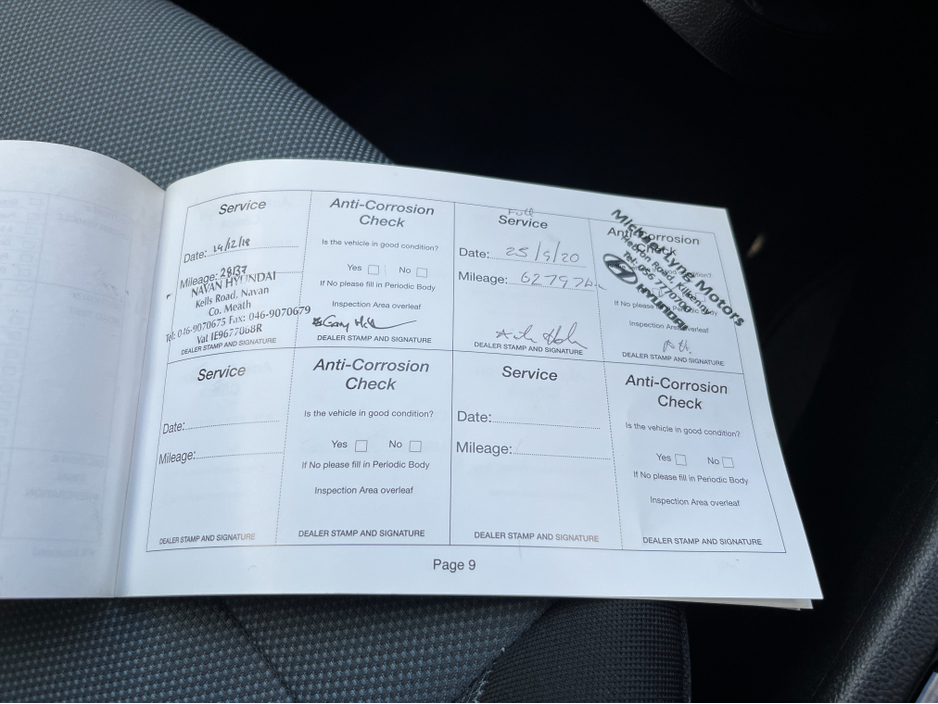 Service
Date: 14/12/18
Mileage: 28137
NAVAN HYUNDAI
Kells Road, Navan
Co. Meath
Tel: 046-9070675 Fax: 046-9070679
DEALER STAMP AND SIGNATURE
Anti-Corrosion
Check
Is the vehicle in good condition?
Yes No
If No please fill in Periodic Body
Inspection Area overleaf
Gary
DEALER STAMP AND SIGNATURE
Full
Service
Date: 25/9/20
Mileage: 62797
DEALER STAMP AND SIGNATURE
Anti-Corrosion
Michael Lyng Motors
Hebron Road, Kilkenny
Tel: 056-7770700
HYUNDAI
If No please
Inspection Area overleaf
DEALER STAMP AND SIGNATURE
Service
Date:
Mileage:
DEALER STAMP AND SIGNATURE
Anti-Corrosion
Check
Is the vehicle in good condition?
Yes No
If No please fill in Periodic Body
Inspection Area overleaf
DEALER STAMP AND SIGNATURE
Service
Date:
Mileage:
DEALER STAMP AND SIGNATURE
Anti-Corrosion
Check
Is the vehicle in good condition?
Yes No
If No please fill in Periodic Body
Inspection Area overleaf
DEALER STAMP AND SIGNATURE
Page 9